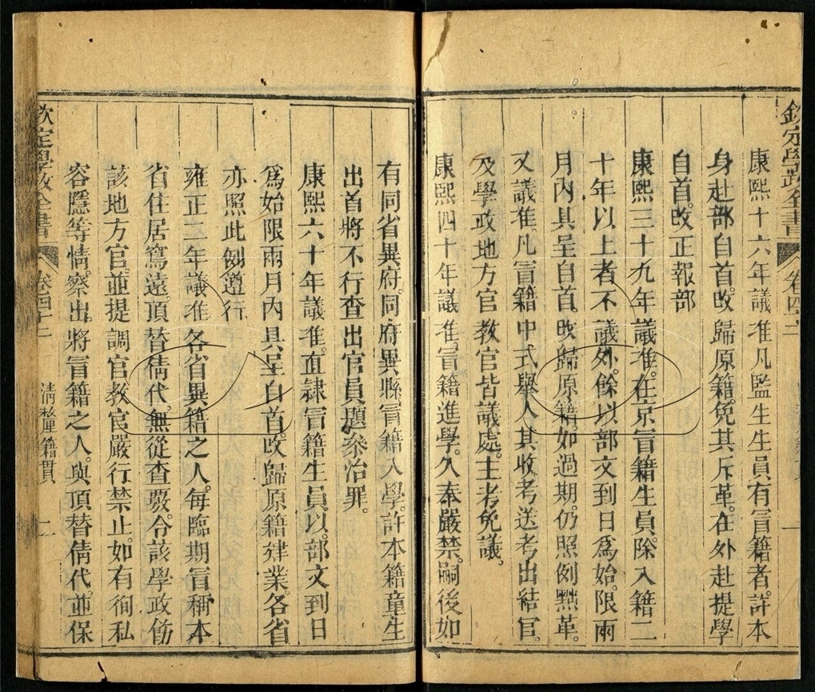 欽定學政全書 卷四十二
康熙十六年議准凡監生生員有冒籍者許本
身赴部自首改歸原籍免其斥革在外赴提學
自首改正報部
康熙三十九年議准在京冒籍生員除入籍二
十年以上者不議外餘以部文到日爲始限兩
月內具呈自首改歸原籍如過期仍照例黜革
又議准凡冒籍中式舉人其收考送考出結官
及學政地方官教官皆議處主考免議
康熙四十年議准冒籍進學久奉嚴禁嗣後如
有同省異府同府異縣冒籍入學許本籍童生
出首將不行查出官員題叅治罪
康熙六十年議准直隸冒籍生員以部文到日
爲始限兩月內具呈自首改歸原籍肄業各省
亦照此例遵行
雍正二年議准各省異籍之人每臨期冒稱本
省住居寫遠頂替倩代無從查覈令該學政飭
該地方官並提調官教官嚴行禁止如有徇私
容隱等情察出將冒籍之人與頂替倩代並保
欽定學政全書 卷四十二 清釐籍貫